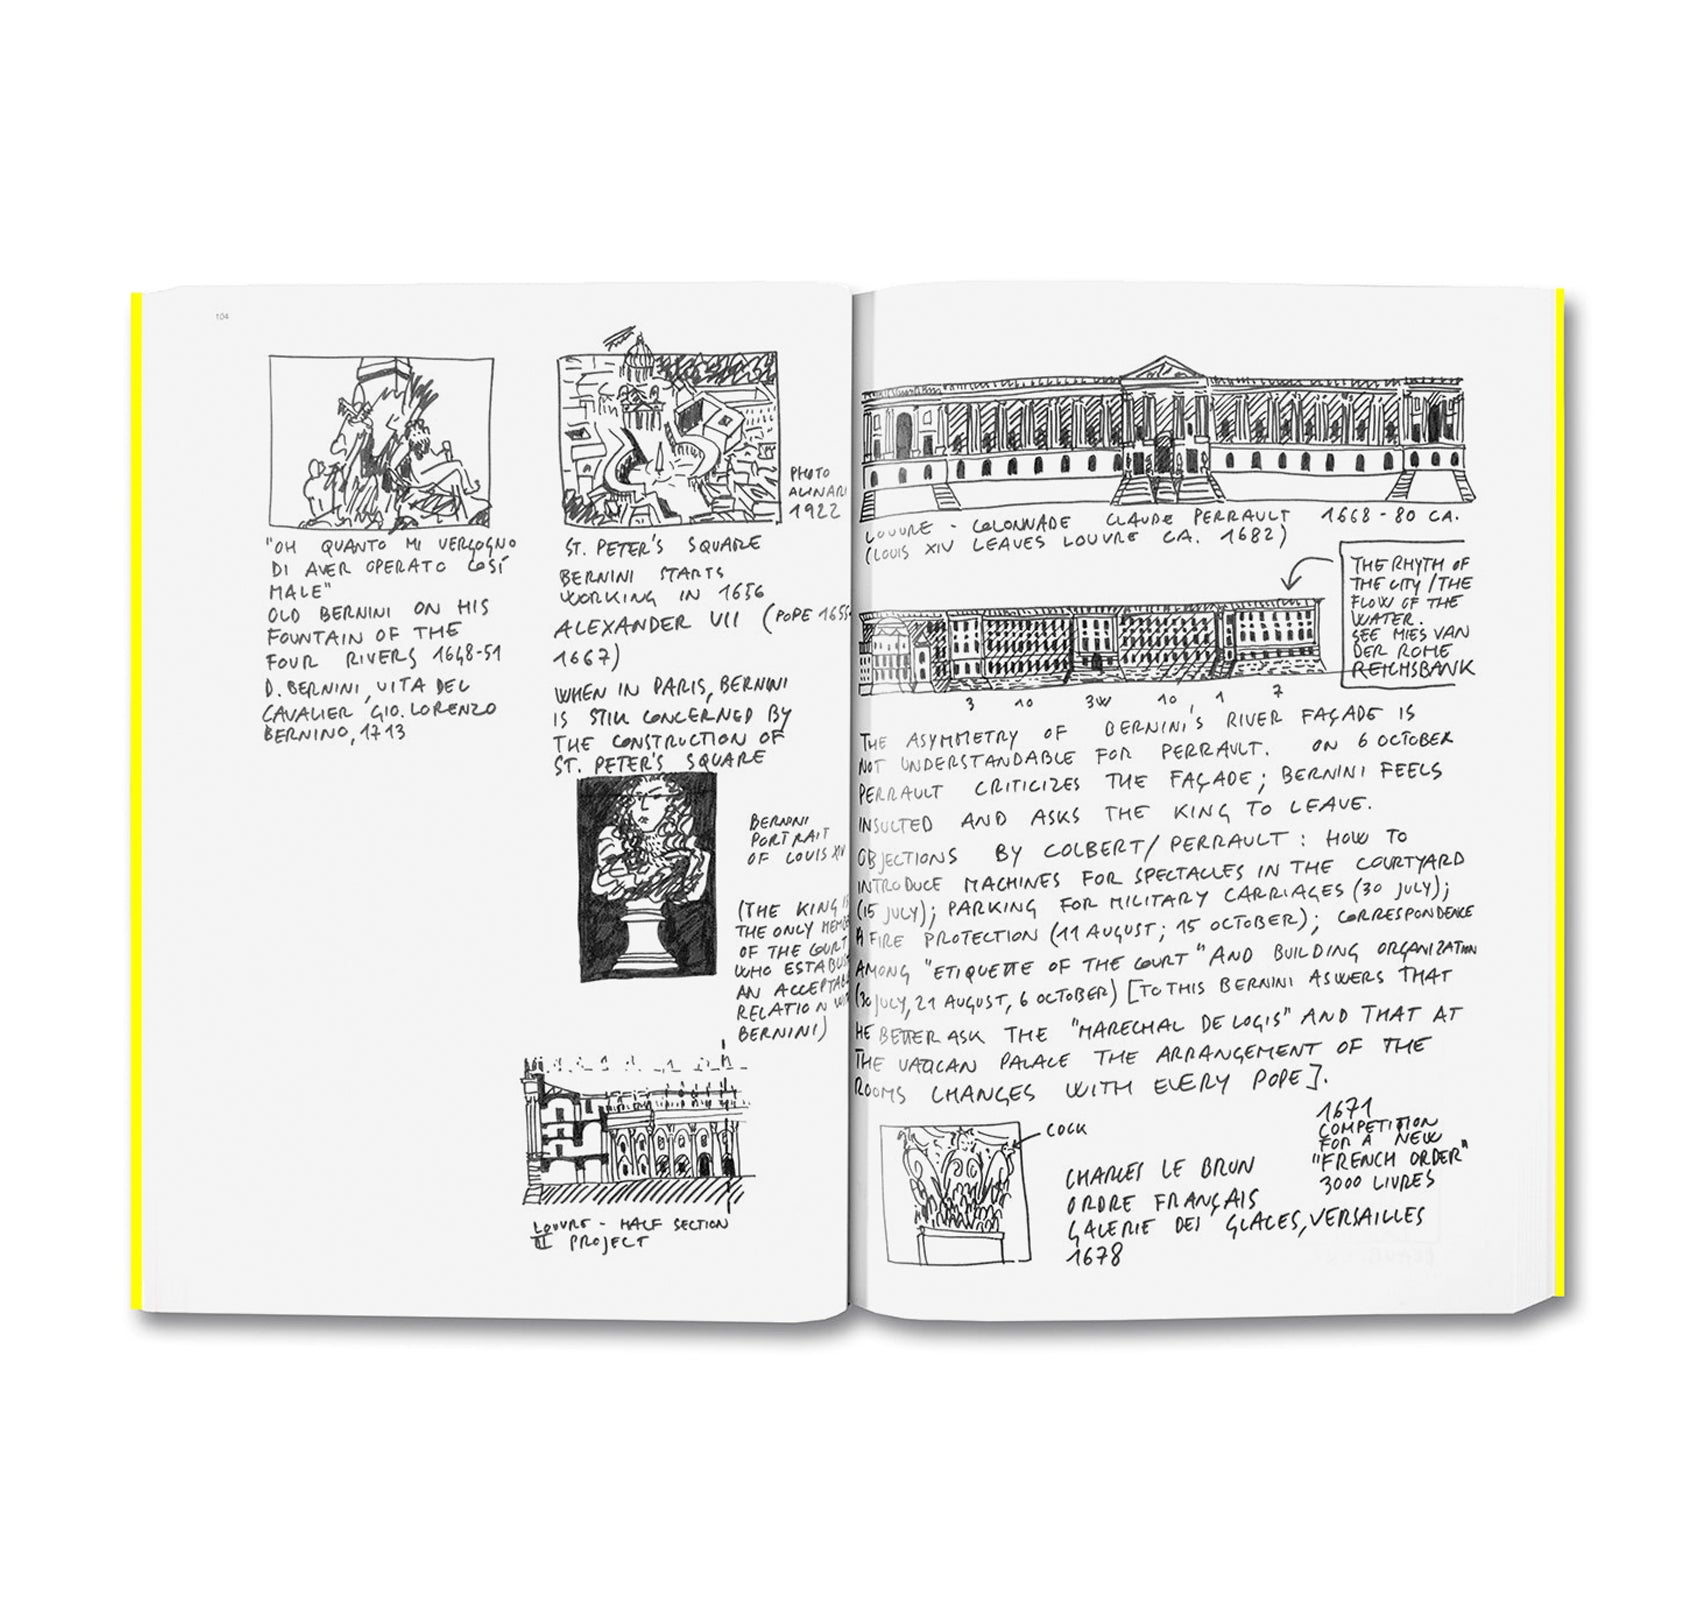 104
"OH QUANTO MI VERGOGNO
DI AVER OPERATO COSÍ
MALE"
OLD BERNINI ON HIS
FOUNTAIN OF THE
FOUR RIVERS 1648-51
D. BERNINI, VITA DEL
CAVALIER GIO. LORENZO
BERNINO, 1713
PHOTO
ALINARI
1922
ST. PETER'S SQUARE
BERNINI STARTS
WORKING IN 1656
ALEXANDER VII (POPE 1655
1667)
WHEN IN PARIS, BERNINI
IS STILL CONCERNED BY
THE CONSTRUCTION OF
ST. PETER'S SQUARE
BERNINI
PORTRAIT
OF LOUIS XIV
(THE KING IS
THE ONLY
OF THE COURT
WHO
AN
RELATION
BERNINI)
LOUVRE - HALF SECTION
III PROJECT
LOUVRE - COLONNADE CLAUDE PERRAULT 1668-80 CA.
(LOUIS XIV LEAVES LOUVRE CA. 1682)
THE RHYTH OF
THE CITY / THE
FLOW OF THE
WATER.
SEE MIES VAN
DER ROHE
REICHSBANK
3 10 3W 10 1 7
THE ASYMMETRY OF BERNINI'S RIVER FAÇADE IS
NOT UNDERSTANDABLE FOR PERRAULT. ON 6 OCTOBER
PERRAULT CRITICIZES THE FAÇADE; BERNINI FEELS
INSULTED AND ASKS THE KING TO LEAVE.
OBJECTIONS BY COLBERT/PERRAULT: HOW TO
INTRODUCE MACHINES FOR SPECTACLES IN THE COURTYARD
(15 JULY); PARKING FOR MILITARY CARRIAGES (30 JULY);
FIRE PROTECTION (11 AUGUST; 15 OCTOBER); CORRESPONDENCE
AMONG "ETIQUETTE OF THE COURT" AND BUILDING ORGANIZATION
(30 JULY, 21 AUGUST, 6 OCTOBER) [TO THIS BERNINI ASWERS THAT
HE BETTER ASK THE "MARECHAL DE LOGIS" AND THAT AT
THE VATICAN PALACE THE ARRANGEMENT OF THE
ROOMS CHANGES WITH EVERY POPE].
COCK
CHARLES LE BRUN
ORDRE FRANÇAIS
GALERIE DES GLACES, VERSAILLES
1678
1671
COMPETITION
FOR A NEW
"FRENCH ORDER"
3000 LIVRES